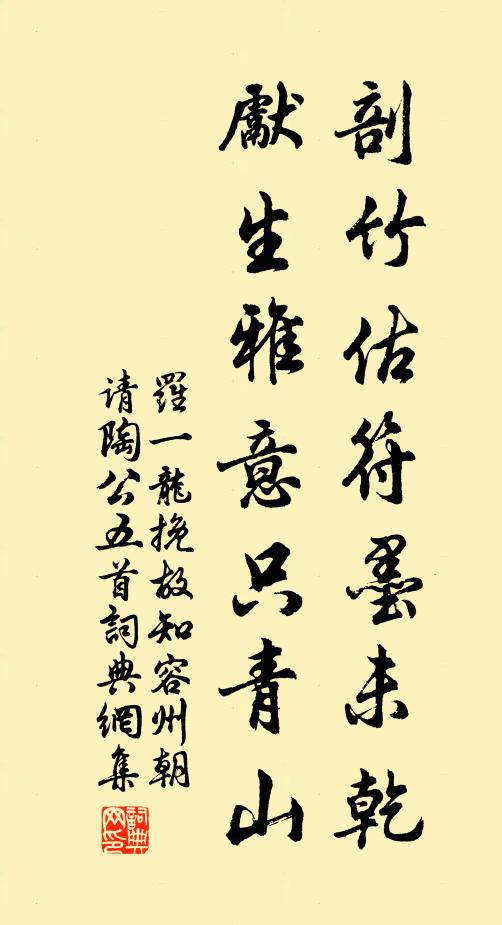 剖竹估符墨未乾
獻生雅意只青山
羅一龍挽故知容州朝
请陶公五首詞典網集
詞典网印